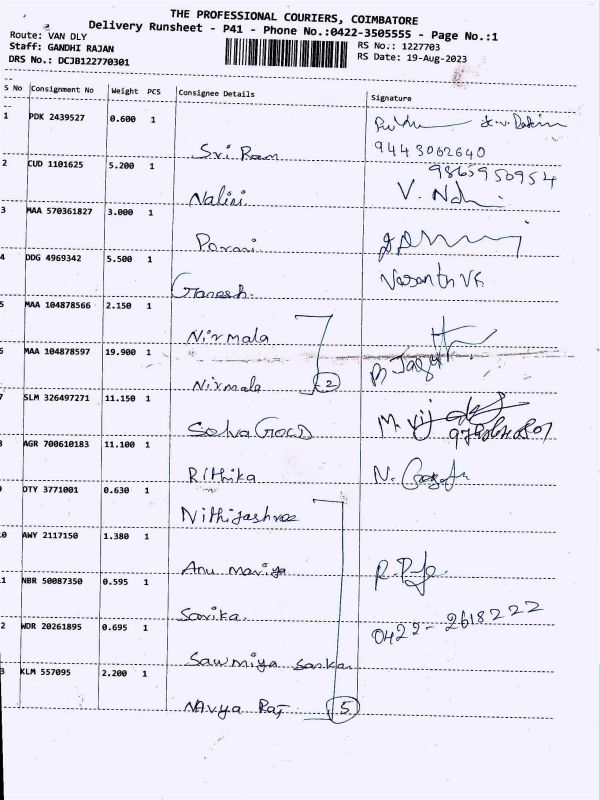 THE PROFESSIONAL COURIERS, COIMBATORE
Delivery Runsheet - P41 - Phone No.:0422-3505555 - Page No.:1
Route: VAN DLY
Staff: GANDHI RAJAN
RS No.: 1227703
DRS No.: DCJB122770301
RS Date: 19-Aug-2023
S No Consignment No Weight PCS Consignee Details Signature
1 PDK 2439527 0.600 1
Sri Ram 9443062640
2 CUD 1101625 5.200 1
9865950954
Nalini
3 MAA 570361827 3.000 1
Parani
4 DDG 4969342 5.500 1
Ganesh. Vasanth VR
5 MAA 104878566 2.150 1
Nirmala
6 MAA 104878597 19.900 1
Nirmala 2
7 SLM 326497271 11.150 1
8 AGR 700610183 11.100 1
Rithika
9 OTY 3771001 0.630 1
Nithijashree
0 AWY 2117150 1.380 1
Anu mariya
1 NBR 50087350 0.595 1
Sarika.
2 WDR 20261895 0.695 1
0422-2618222
Sawmiya Sankar
3 KLM 557095 2.200 1
NAvya Raj 5